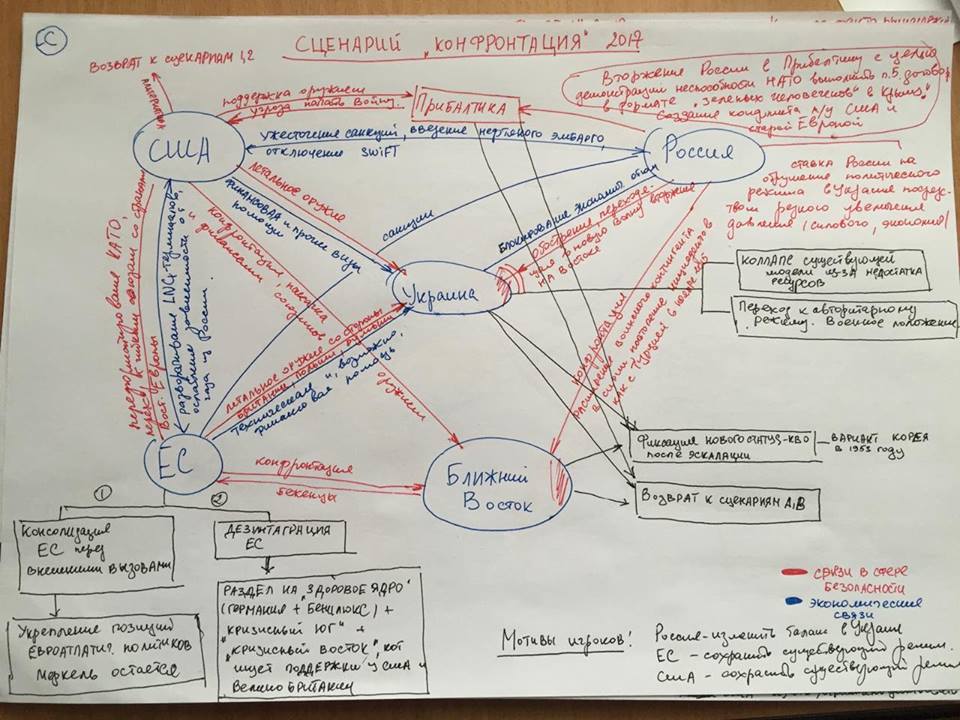 С
СЦЕНАРИЙ „КОНФРОНТАЦИЯ" 2017
ВОЗВРАТ К СЦЕНАРИЯМ 1,2
Вторжение России в Прибалтику с целью
демонстрации неспособности НАТО выполнить п.5 договора
в формате „зеленых человечков" в Крыму"
создание конфликта м/у США и
старой Европой
поддержка оружием
угроза начать войну.
ПРИБАЛТИКА
США
Россия
ужесточение санкций, введение нефтяного эмбарго,
отключение SWIFT
ставка России на
обрушение политического
режима в Украине посред-
твом резкого увеличения
давления (силового, экономич)
летальное оружие
финансовая и прочие виды
помощи
санкции
Блокирование эконом.
обострение, переходя-
щее в новую волну вторжения
на Востоке
Украина
конфронтация, накачка
финансами, союзников
оружием
переформатирование НАТО,
переход к гибким союзам со странами
Вост. Европы
разворачивание LNG терминалов,
ослабление зависимости от
газа из России
летальное оружие со стороны
Британии, Польши, Румынии
техническая и, возможно,
финансовая помощь
конфронтация
расширение военного контингента
в Сирии, повторение инцидента
как с Турцией в ноябре 2015
КОЛЛАПС существующей
модели из-за недостатка
ресурсов
Переход к авторитарному
режиму. Военное положение
Фиксация нового статус-кво
после эскалации
ВАРИАНТ КОРЕЯ
в 1953 году
Возврат к сценариям А,В
ЕС
конфронтация
беженцы
Ближний
Восток
1
2
Консолидация
ЕС перед
внешними вызовами
Укрепление позиций
евроатлатич. политиков
Меркель остается
ДЕЗИНТЕГРАЦИЯ
ЕС
РАЗДЕЛ НА „ЗДОРОВОЕ ЯДРО"
(ГЕРМАНИЯ + БЕНИЛЮКС) +
„КРИЗИСНЫЙ ЮГ" +
„КРИЗИСНЫЙ ВОСТОК", кот
ищет поддержки у США и
Великобритании
связи в сфере
безопасности
экономические
связи
Мотивы игроков!
Россия - изменить баланс в Украине
ЕС - сохранить существующий режим.
США - сохранить существующий режим